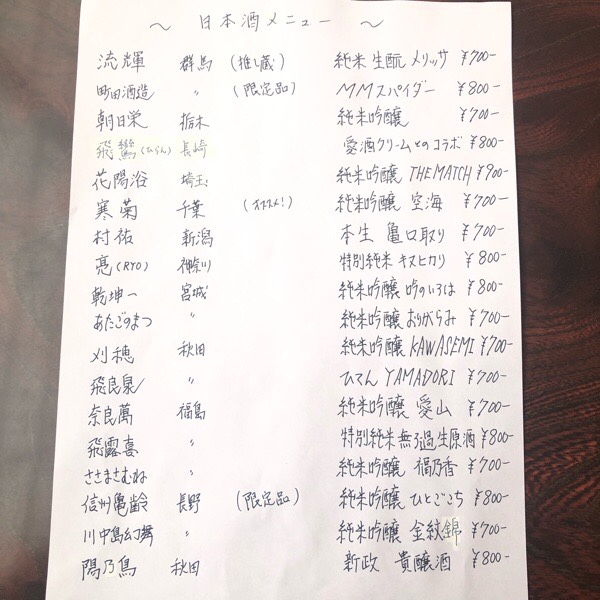 ～ 日本酒メニュー ～
流輝 群馬 (推し蔵) 純米 生酛 メリッサ ¥700-
町田酒造 〃 (限定品) MMスパイダー ¥800-
朝日栄 栃木 純米吟醸 ¥700-
飛鸞(ひらん) 長崎 愛酒クリームとのコラボ ¥800-
花陽浴 埼玉 純米吟醸 THE MATCH ¥900-
寒菊 千葉 (オススメ!) 純米吟醸 空海 ¥700-
村祐 新潟 本生 亀口取り ¥700-
亮(RYO) 神奈川 特別純米 キヌヒカリ ¥800-
乾坤一 宮城 純米吟醸 吟のいろは ¥800-
あたごのまつ 〃 純米吟醸 おりがらみ ¥700-
刈穂 秋田 純米吟醸 KAWASEMI ¥700-
飛良泉 〃 ひてん YAMADORI ¥700-
奈良萬 福島 純米吟醸 愛山 ¥700-
飛露喜 〃 特別純米 無ろ過生原酒 ¥800-
ささまさむね 〃 純米吟醸 福乃香 ¥700-
信州亀齢 長野 (限定品) 純米吟醸 ひとごこち ¥800-
川中島幻舞 〃 純米吟醸 金紋錦 ¥700-
陽乃鳥 秋田 新政 貴醸酒 ¥800-